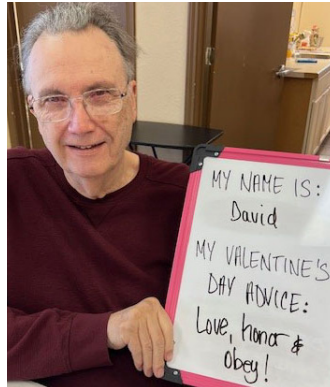 MY NAME IS:
David
MY VALENTINE'S
DAY ADVICE:
Love, honor &
obey!